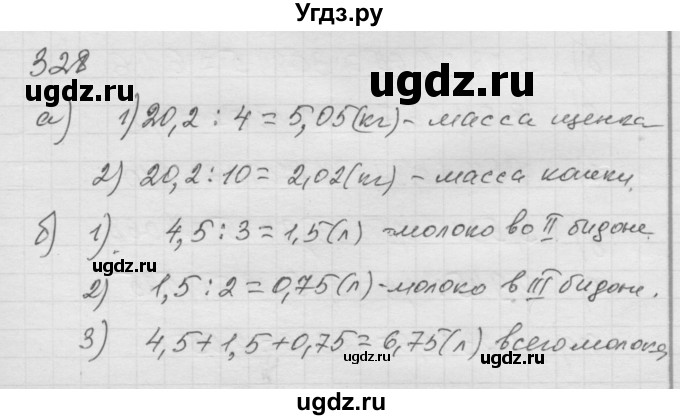 Угдз.ру
328
ugdz.ru
а) 1) 20,2 : 4 = 5,05 (кг) - масса щенка
2) 20,2 : 10 = 2,02 (кг) - масса кошки.
б) 1) 4,5 : 3 = 1,5 (л) - молоко во II бидоне.
ugdz.ru
ugdz.ru
2) 1,5 : 2 = 0,75 (л) - молоко в III бидоне.
3) 4,5 + 1,5 + 0,75 = 6,75 (л) всего молока,
ugdz.ru
ugdz.ru
ugdz.ru